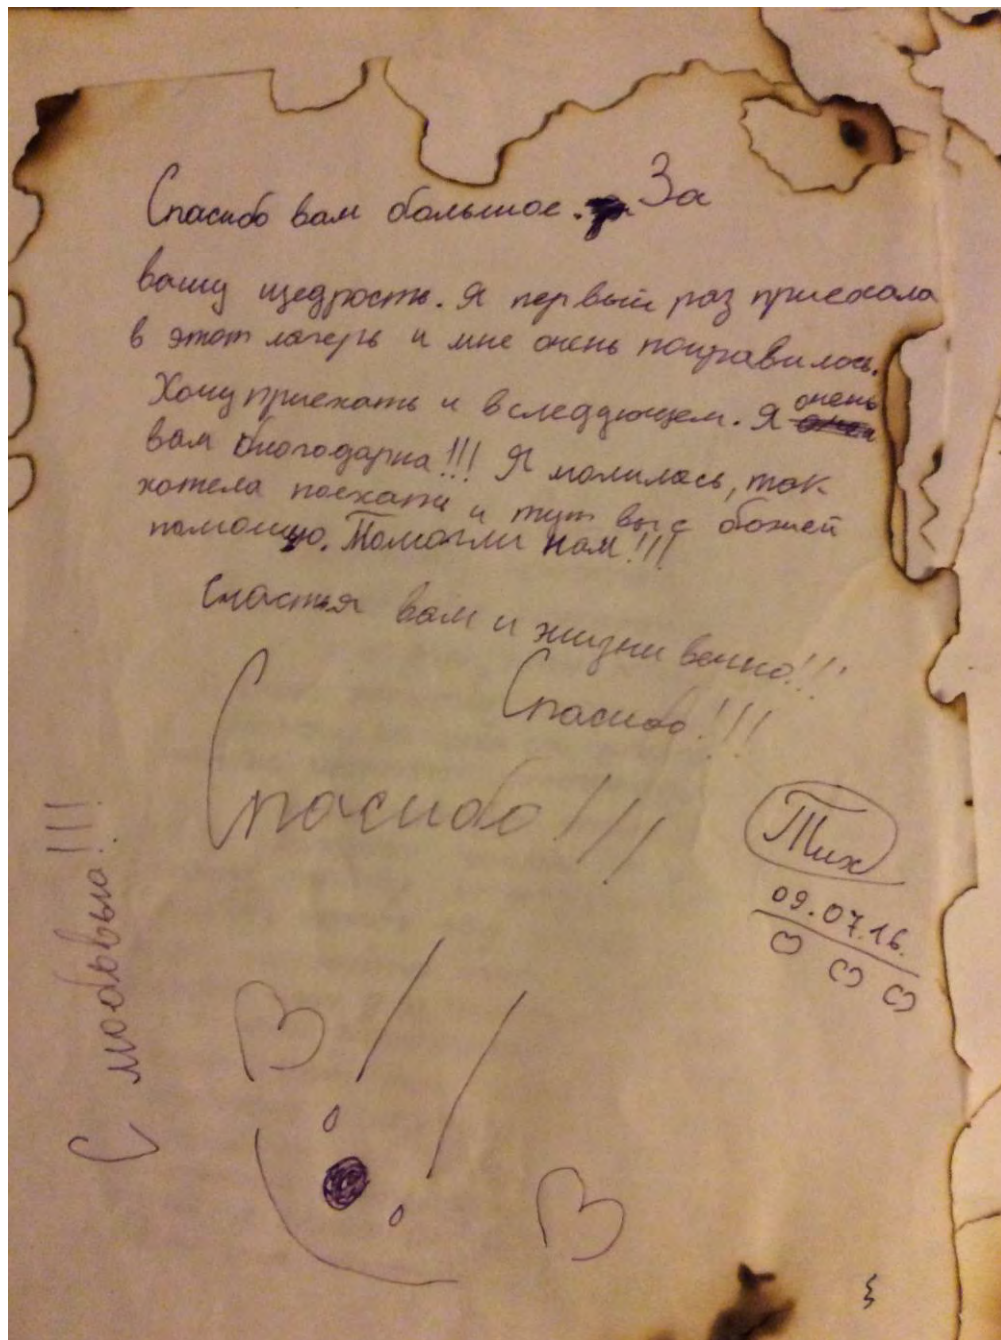 Спасибо вам большое. За
вашу щедрость. Я первый раз приехала
в этот лагерь и мне очень понравилось.
Хочу приехать и вследующем. Я очень
вам благодарна!!! Я молилась, так
хотела поехать и тут вы с божей
помощю. Помогли нам!!!
Счастья вам и жизни вечно!!!
Спасибо!!!
Спасибо!!!
Тих
09.07.16.
С любовью!!!